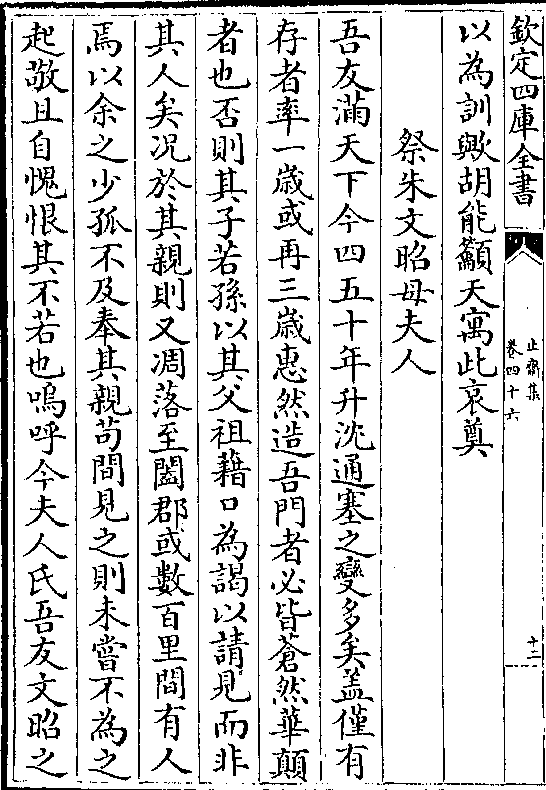 欽定四庫全書
止齋集
卷四十六
十二
以為訓歟胡能籲天寓此哀奠
祭朱文昭母夫人
吾友滿天下今四五十年升沈通塞之變多矣盖僅有
存者率一歳或再三歳惠然造吾門者必皆蒼然華顛
者也否則其子若孫以其父祖藉口為謁以請見而非
其人矣况於其親則又凋落至闔郡或數百里間有人
焉以余之少孤不及奉其親茍間見之則未嘗不為之
起敬且自愧恨其不若也嗚呼今夫人氏吾友文昭之